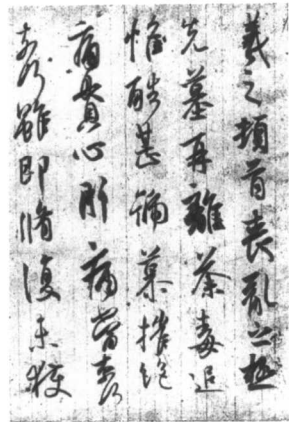 羲之頓首喪亂之極
先墓再離荼毒追
惟酷甚號慕摧絕
痛貫心肝痛當奈何
奈何雖即脩復未獲